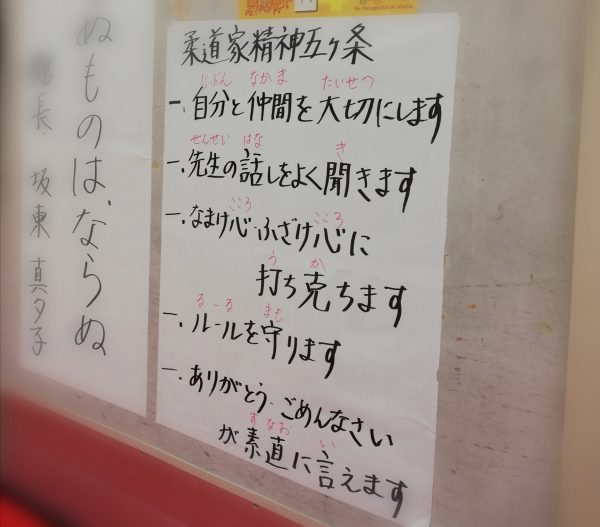 Be thoughtful of others.
柔道家精神五ヶ条
じぶん なかま たいせつ
一、自分と仲間を大切にします
せんせい はな き
一、先生の話しをよく聞きます
こころ こころ
一、なまけ心・ふざけ心に
う か
打ち克ちます
るーる まも
一、ルールを守ります
一、ありがとう・ごめんなさい
すなお い
が素直に言えます
ぬものは、ならぬ
館長 坂東真夕子